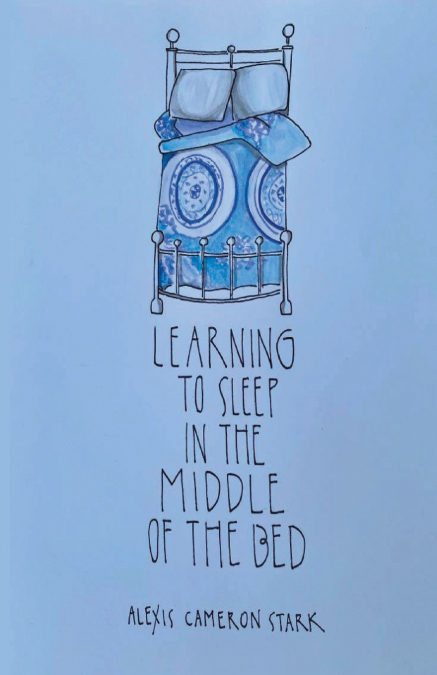 LEARNING
TO SLEEP
IN THE
MIDDLE
OF THE BED
ALEXIS CAMERON STARK